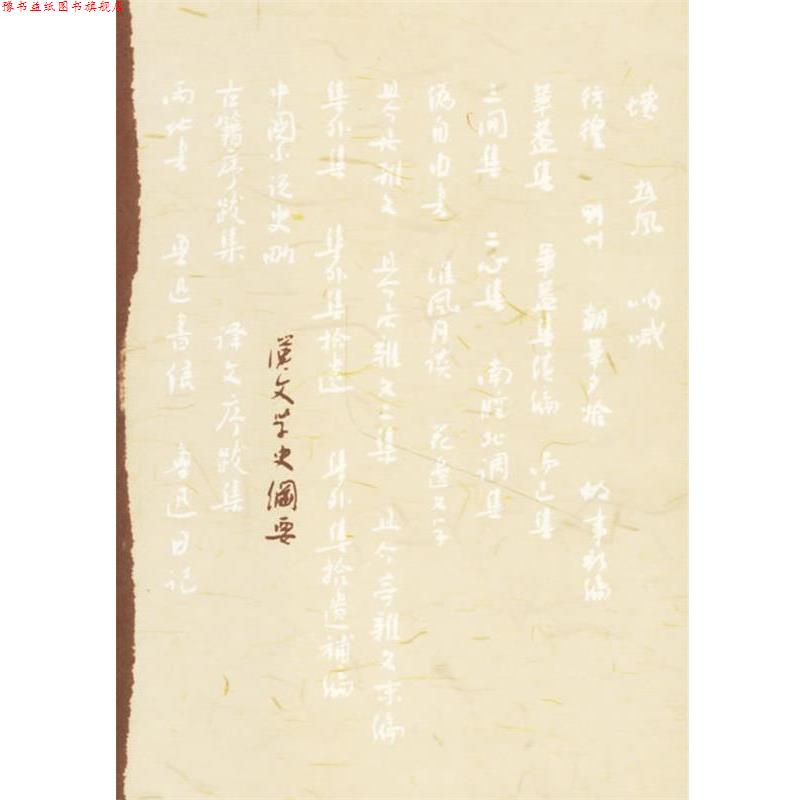 豫书益纸图书旗舰店
坟 热风 呐喊
彷徨 野草 朝華夕拾 故事新编
華蓋集 華蓋集续编 而已集
三闲集 二心集 南腔北调集
偽自由书 准风月谈 花邊文学
且介亭雜文 且介亭雜文二集 且介亭雜文末编
集外集 集外集拾遗 集外集拾遗補编
中國小说史略 漢文学史綱要
古籍序跋集 译文序跋集
两地书 魯迅書信 魯迅日记